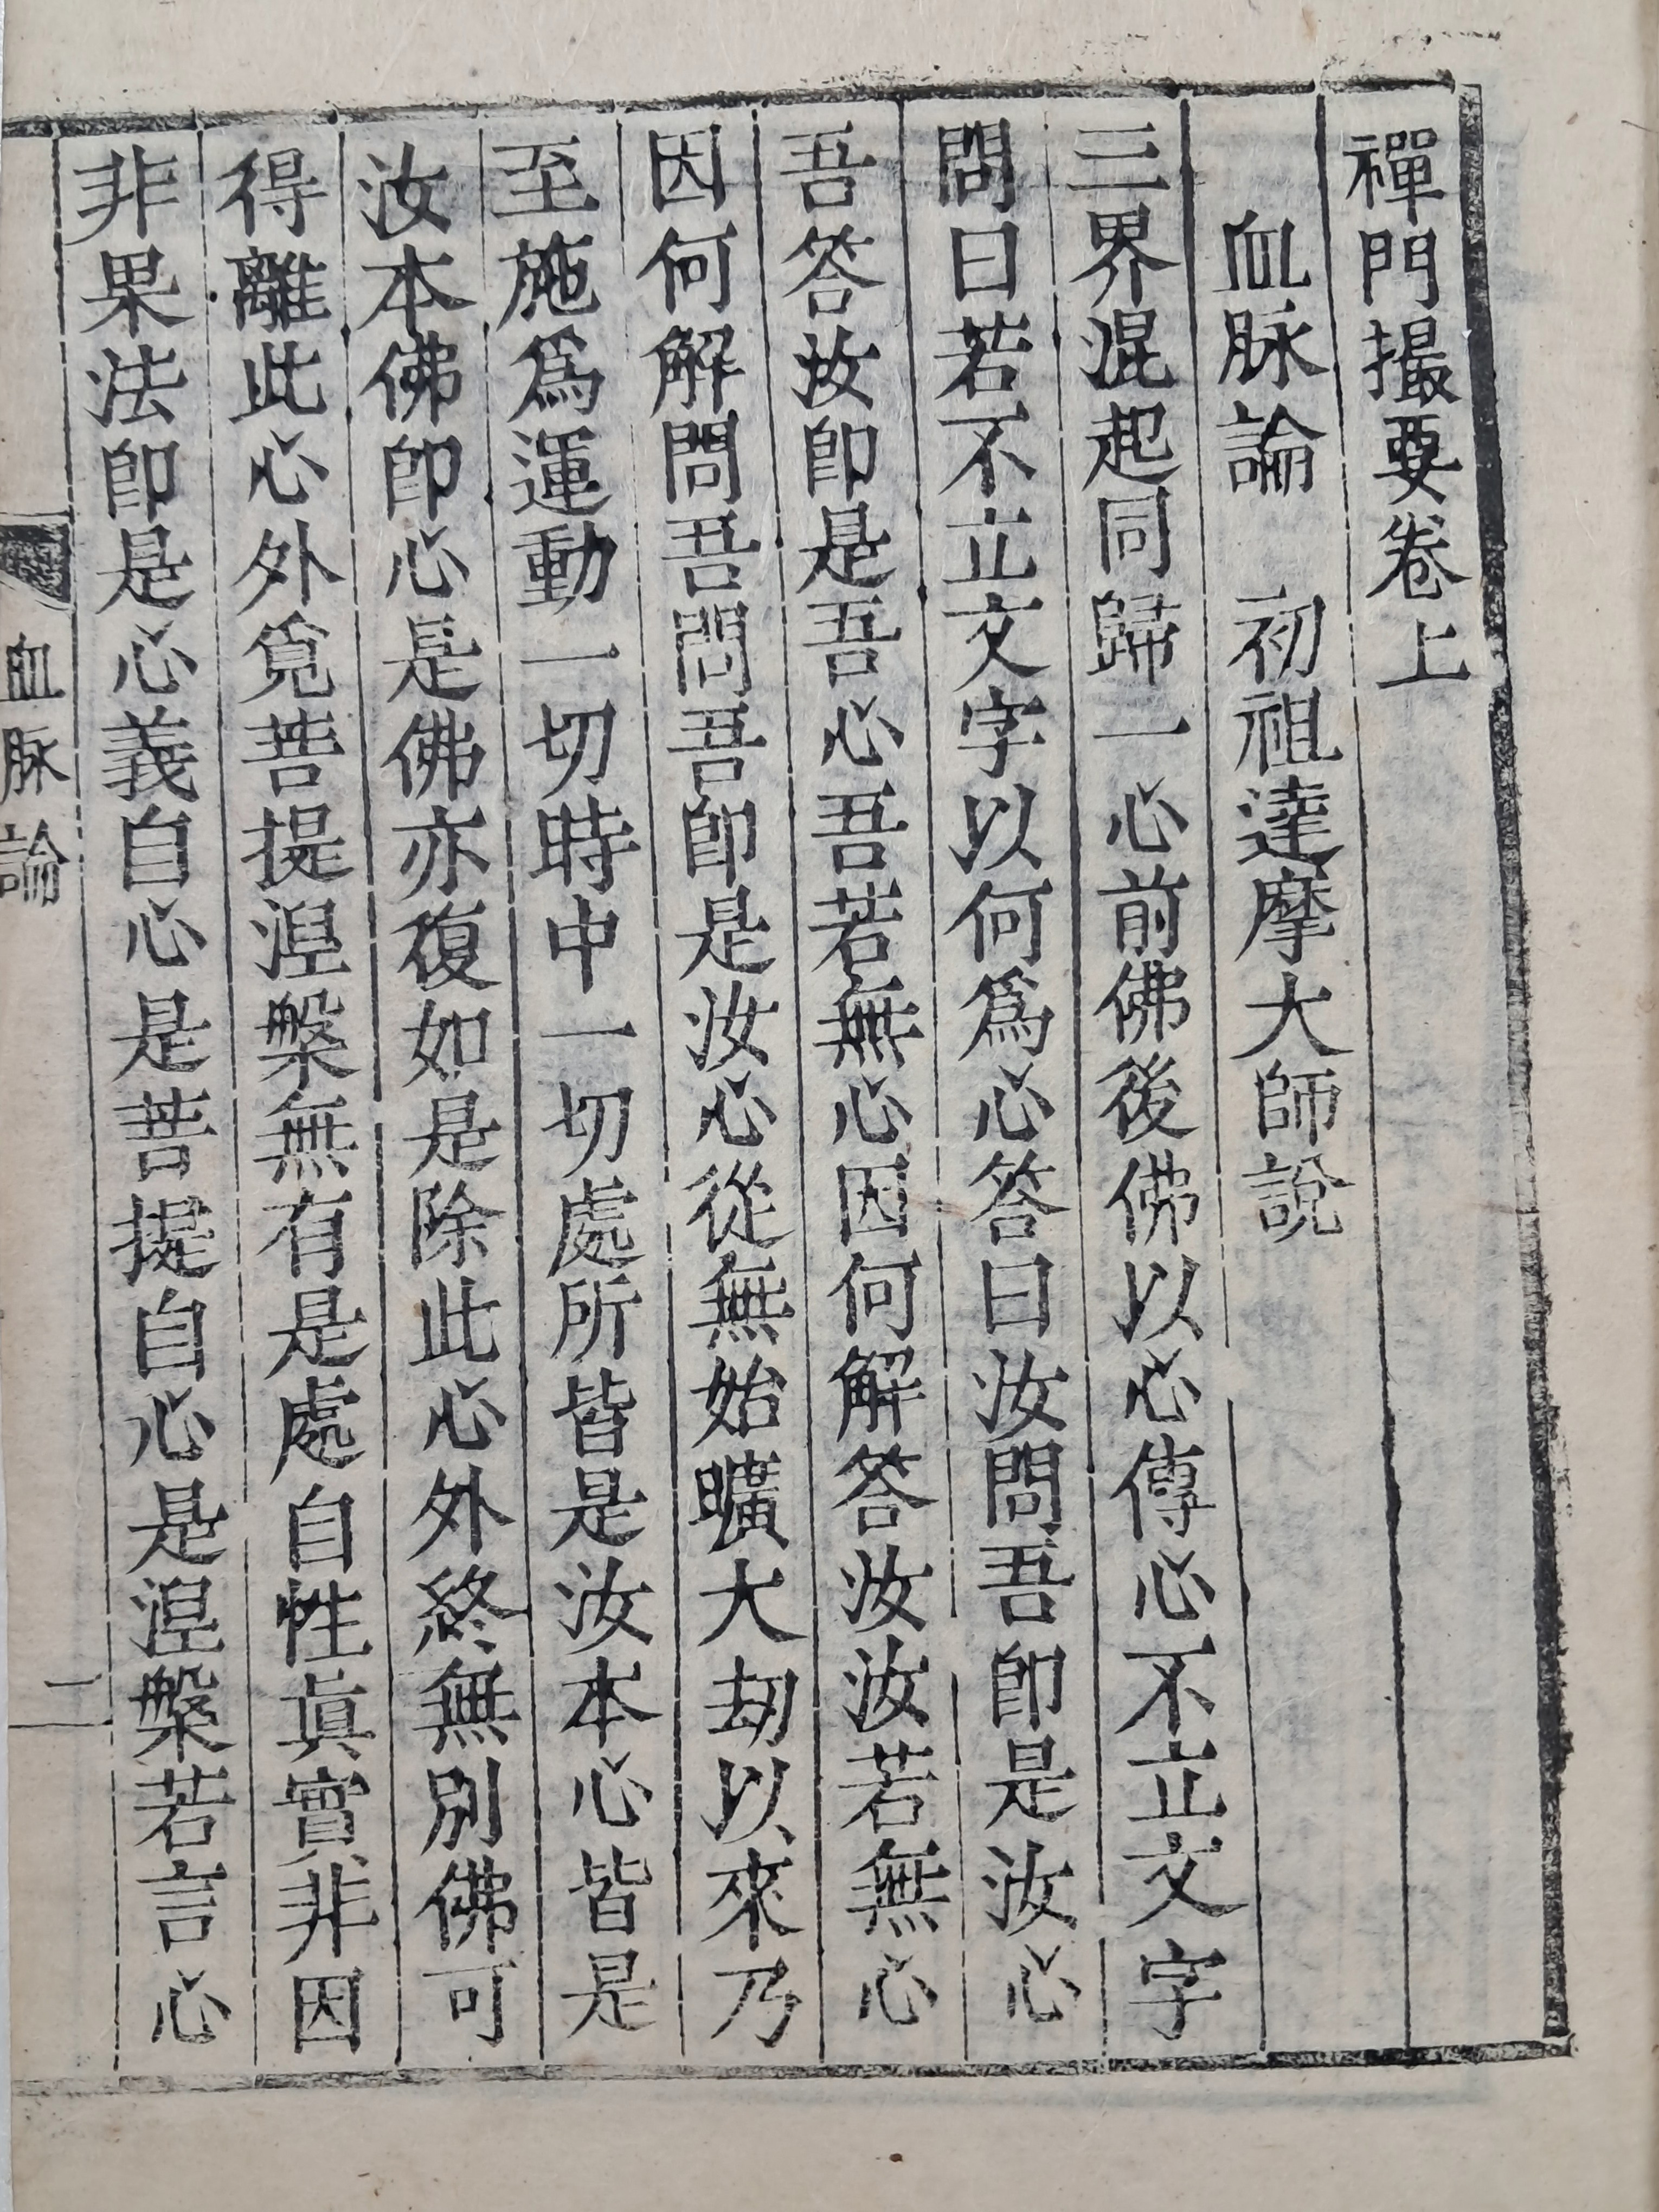 禪門撮要卷上
血脉論　初祖達摩大師說
三界混起同歸一心前佛後佛以心傳心不立文字
問曰若不立文字以何爲心答曰汝問吾卽是汝心
吾答汝卽是吾心吾若無心因何解答汝汝若無心
因何解問吾問吾卽是汝心從無始曠大劫以來乃
至施爲運動一切時中一切處所皆是汝本心皆是
汝本佛卽心是佛亦復如是除此心外終無別佛可
得離此心外覓菩提涅槃無有是處自性眞實非因
非果法卽是心義自心是菩提自心是涅槃若言心
血脉論
二